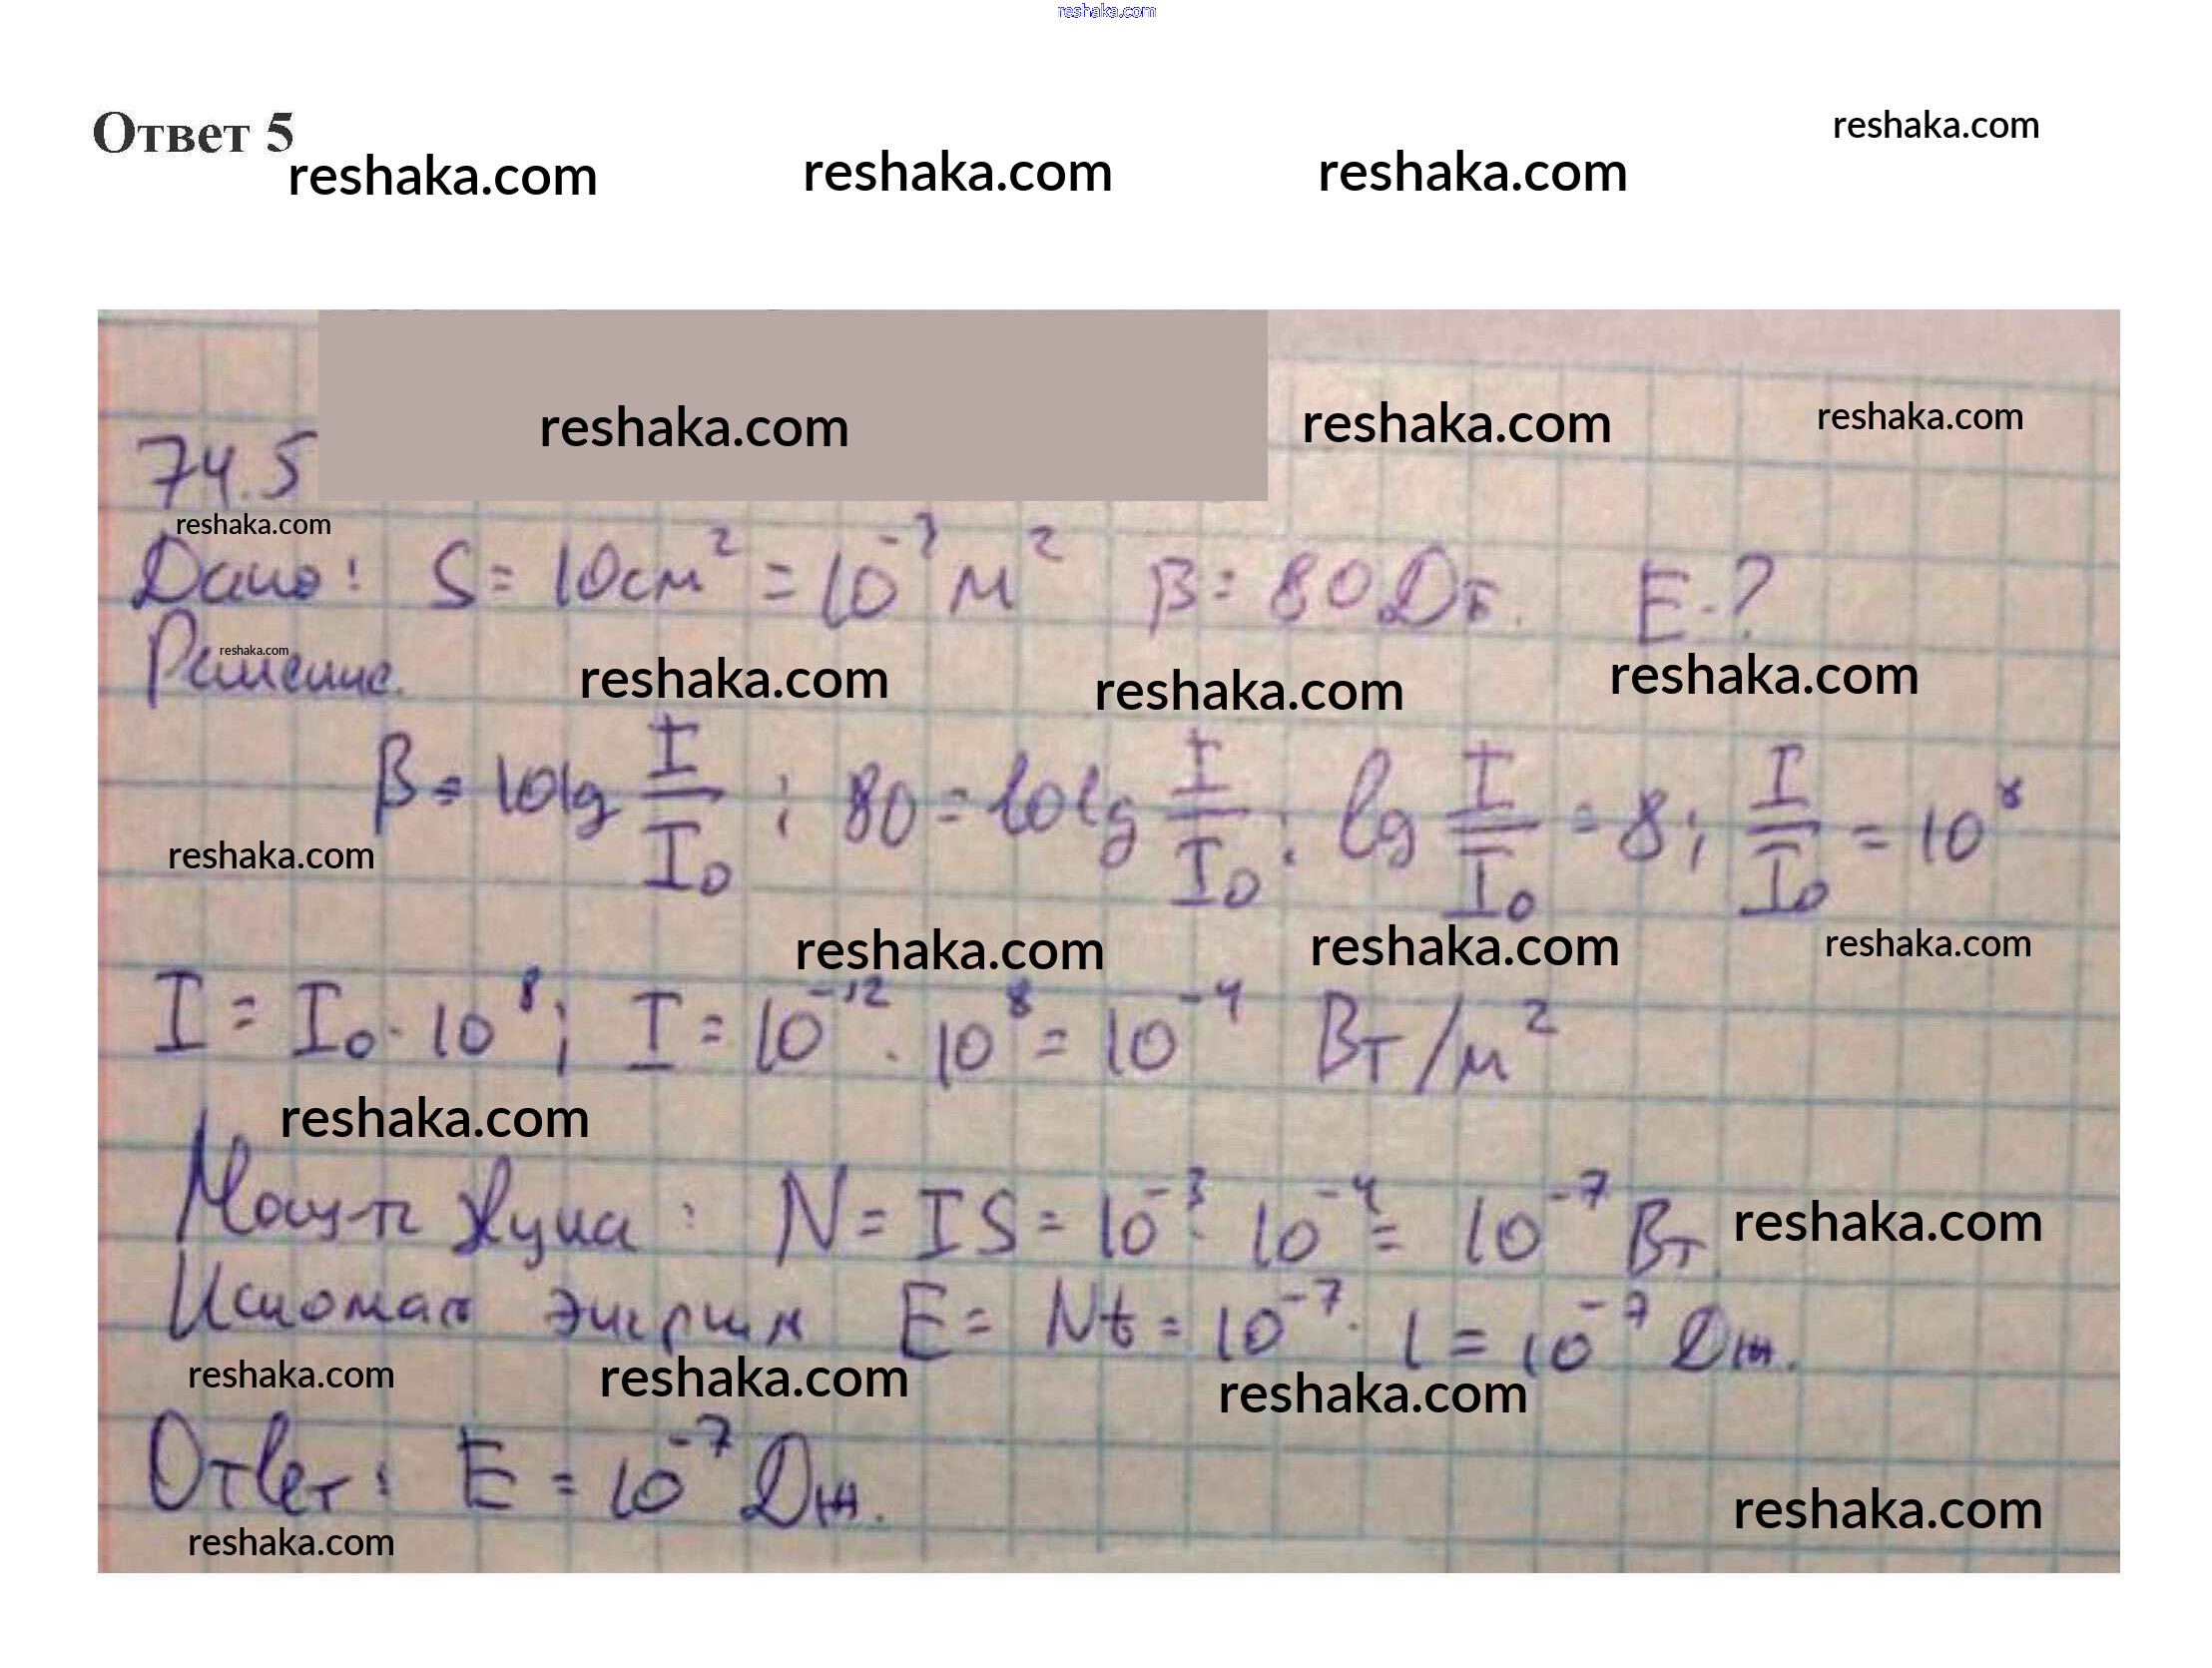 reshaka.com
Ответ 5
reshaka.com
reshaka.com reshaka.com reshaka.com
reshaka.com reshaka.com reshaka.com
74.5
reshaka.com
Дано: S = 10 см² = 10⁻³ м² β = 80 Дб. E-?
Решение.
reshaka.com
reshaka.com reshaka.com reshaka.com
β = 10lg I/I₀ ; 80 = 10lg I/I₀ ; lg I/I₀ = 8; I/I₀ = 10⁸
reshaka.com
reshaka.com reshaka.com reshaka.com
I = I₀ · 10⁸; I = 10⁻¹² · 10⁸ = 10⁻⁴ Вт/м²
reshaka.com
Мощ-ть звука: N = IS = 10⁻³ · 10⁻⁴ = 10⁻⁷ Вт.
reshaka.com
Искомая энергия E = Nt = 10⁻⁷ · 1 = 10⁻⁷ Дж.
reshaka.com reshaka.com reshaka.com
Ответ: E = 10⁻⁷ Дж.
reshaka.com
reshaka.com